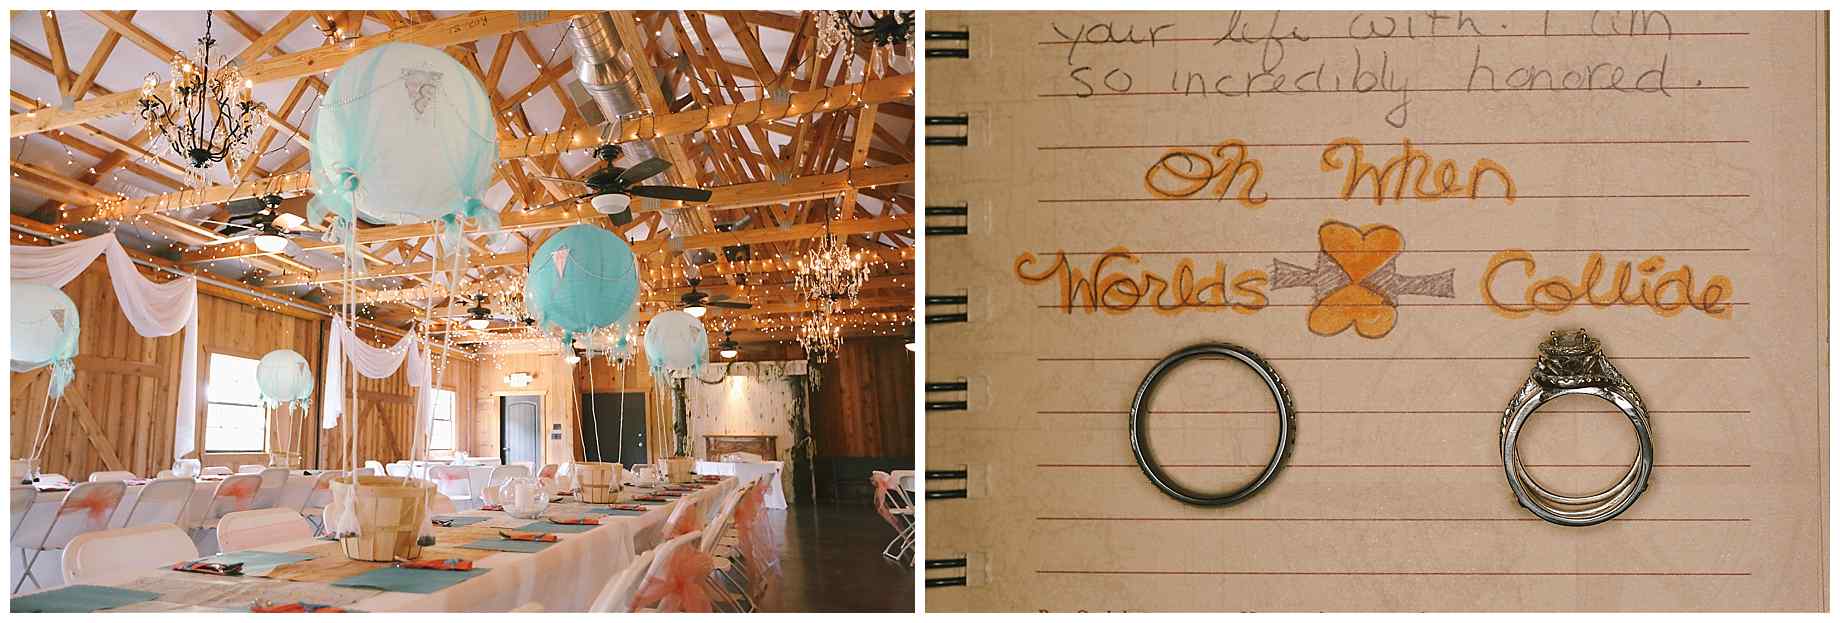 your life with. I am
so incredibly honored.
Oh When
Worlds Collide